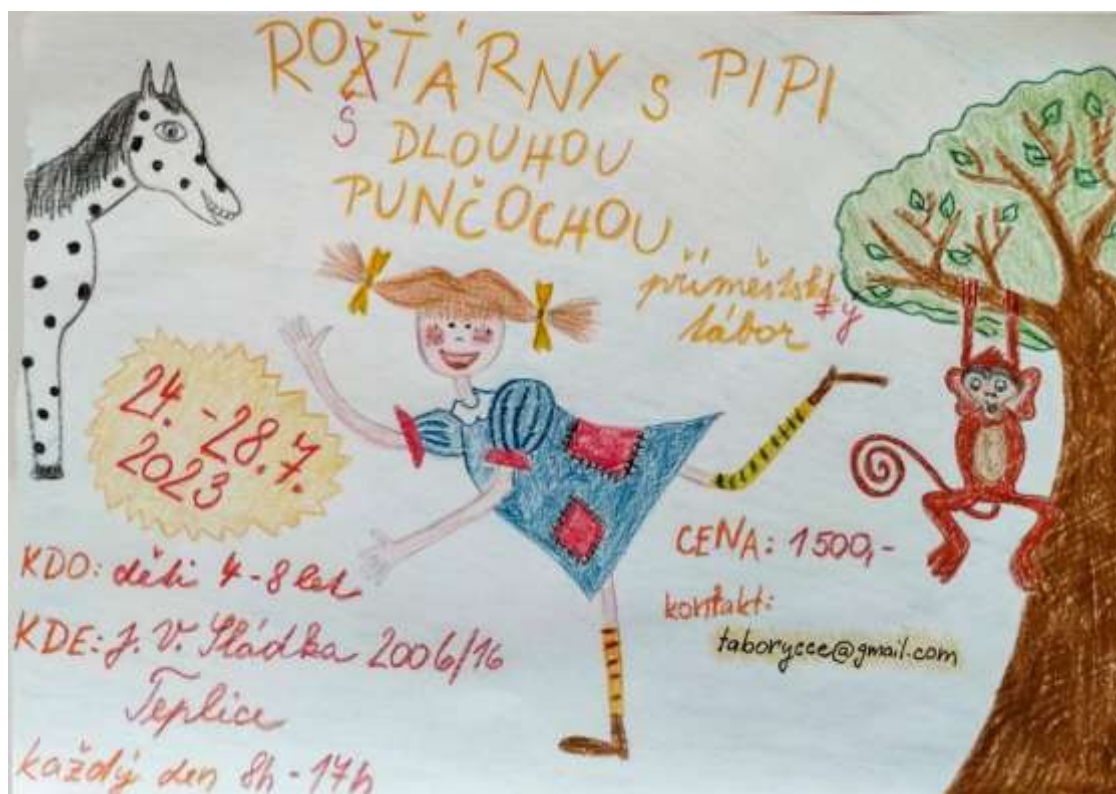 ROŽŤÁRNY S PIPI
Š DLOUHOU
PUNČOCHOU
příměstský
tábor
24.-28.7.
2023
KDO: děti 4-8 let
KDE: J. V. Sládka 2006/16
Teplice
každý den 8h-17h
CENA: 1500,-
kontakt:
taborycce@gmail.com